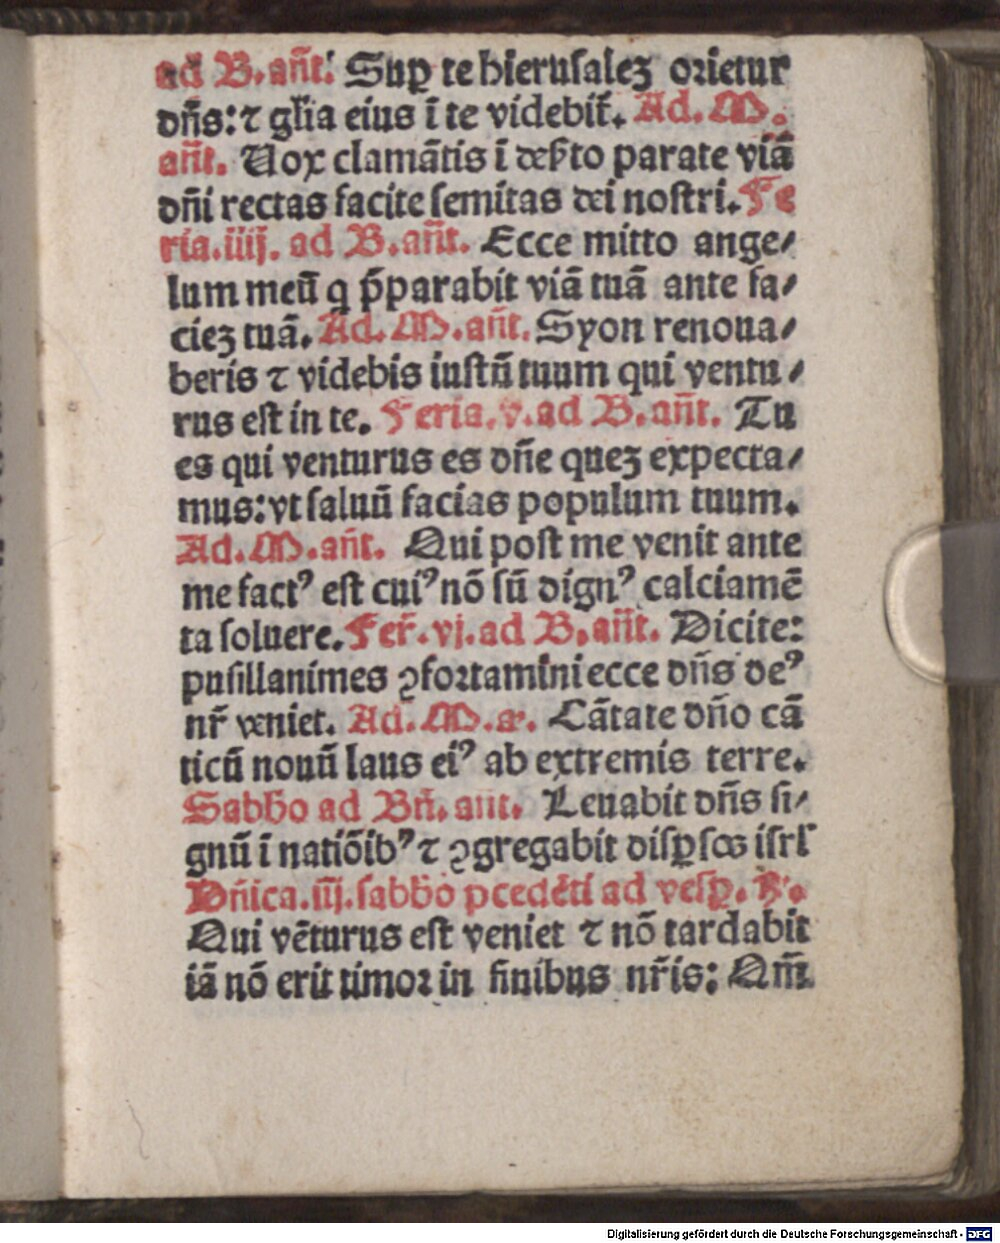 ad B. añt. Suꝑ te hierusaleʒ orietur
dñs: ⁊ gl̃ia eius ī te videbit̃. Ad. M.
añt. Uox clamātis ī deẜto parate viā
dñi rectas facite semitas dei nostri. Fe
ria. iiij. ad B. añt. Ecce mitto ange⸗
lum meū q p̄parabit viā tuā ante fa⸗
cieʒ tuā. Ad. M. añt. Syon renoua⸗
beris ⁊ videbis iustū tuum qui ventu⸗
rus est in te. Feria. v. ad B. añt. Tu
es qui venturus es dñe queʒ expecta⸗
mus: vt saluū facias populum tuum.
Ad. M. añt. Qui post me venit ante
me factꝰ est cuiꝰ nō sū dignꝰ calciamē
ta soluere. Fer̃. vj. ad B. añt. Dicite:
pusillanimes ꝯfortamini ecce dñs deꝰ
nr̃ veniet. Ad. M. a. Cātate dño cā
ticū nouū laus eiꝰ ab extremis terre.
Sabbo ad Bñ. ant. Leuabit dñs si⸗
gnū ī natiōibꝰ ⁊ ꝯgregabit disꝑsos isrl
Dñica. iij. sabbo pcedēti ad vesꝑ. ℟.
Qui vēturus est veniet ⁊ nō tardabit
iā nō erit timor in finibus nr̃is: Qm̄
Digitalisierung gefördert durch die Deutsche Forschungsgemeinschaft - DFG